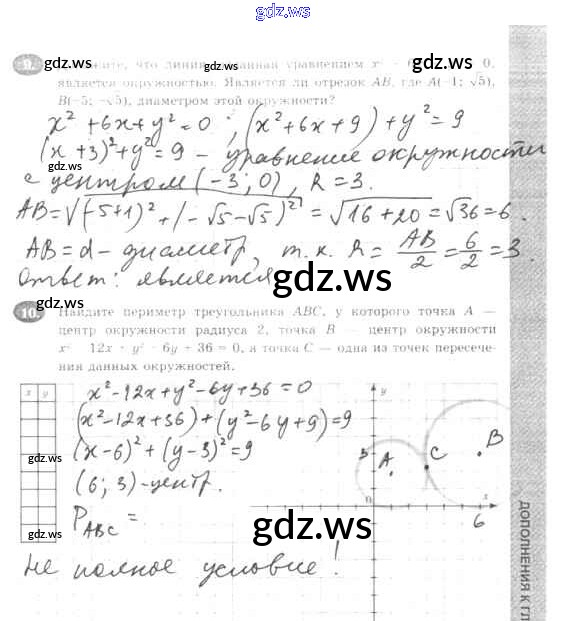 gdz.ws
gdz.ws gdz.ws gdz.ws
9. что линия, заданная уравнением x² 0,
является окружностью. Является ли отрезок AB, где A(−1; √5),
B(−5; −√5), диаметром этой окружности?
x² + 6x + y² = 0 ; (x² + 6x + 9) + y² = 9
(x + 3)² + y² = 9 – уравнение окружности
с центром (−3; 0), R = 3.
AB = √(−5+1)² + (−√5 −√5)² = √16 + 20 = √36 = 6.
AB = d – диаметр, т.к. R = AB/2 = 6/2 = 3.
Ответ: является
gdz.ws
10. Найдите периметр треугольника ABC, у которого точка A —
центр окружности радиуса 2, точка B — центр окружности
x² 12x + y² 6y + 36 = 0, а точка C — одна из точек пересече-
ния данных окружностей.
x y
x² − 12x + y² − 6y + 36 = 0
(x² − 12x + 36) + (y² − 6y + 9) = 9
(x − 6)² + (y − 3)² = 9
(6; 3) – центр.
P ABC =
Не полное условие!
y
3 A C B
0 6 x
gdz.ws gdz.ws
gdz.ws gdz.ws
ДОПОЛНЕНИЯ К ГЛ